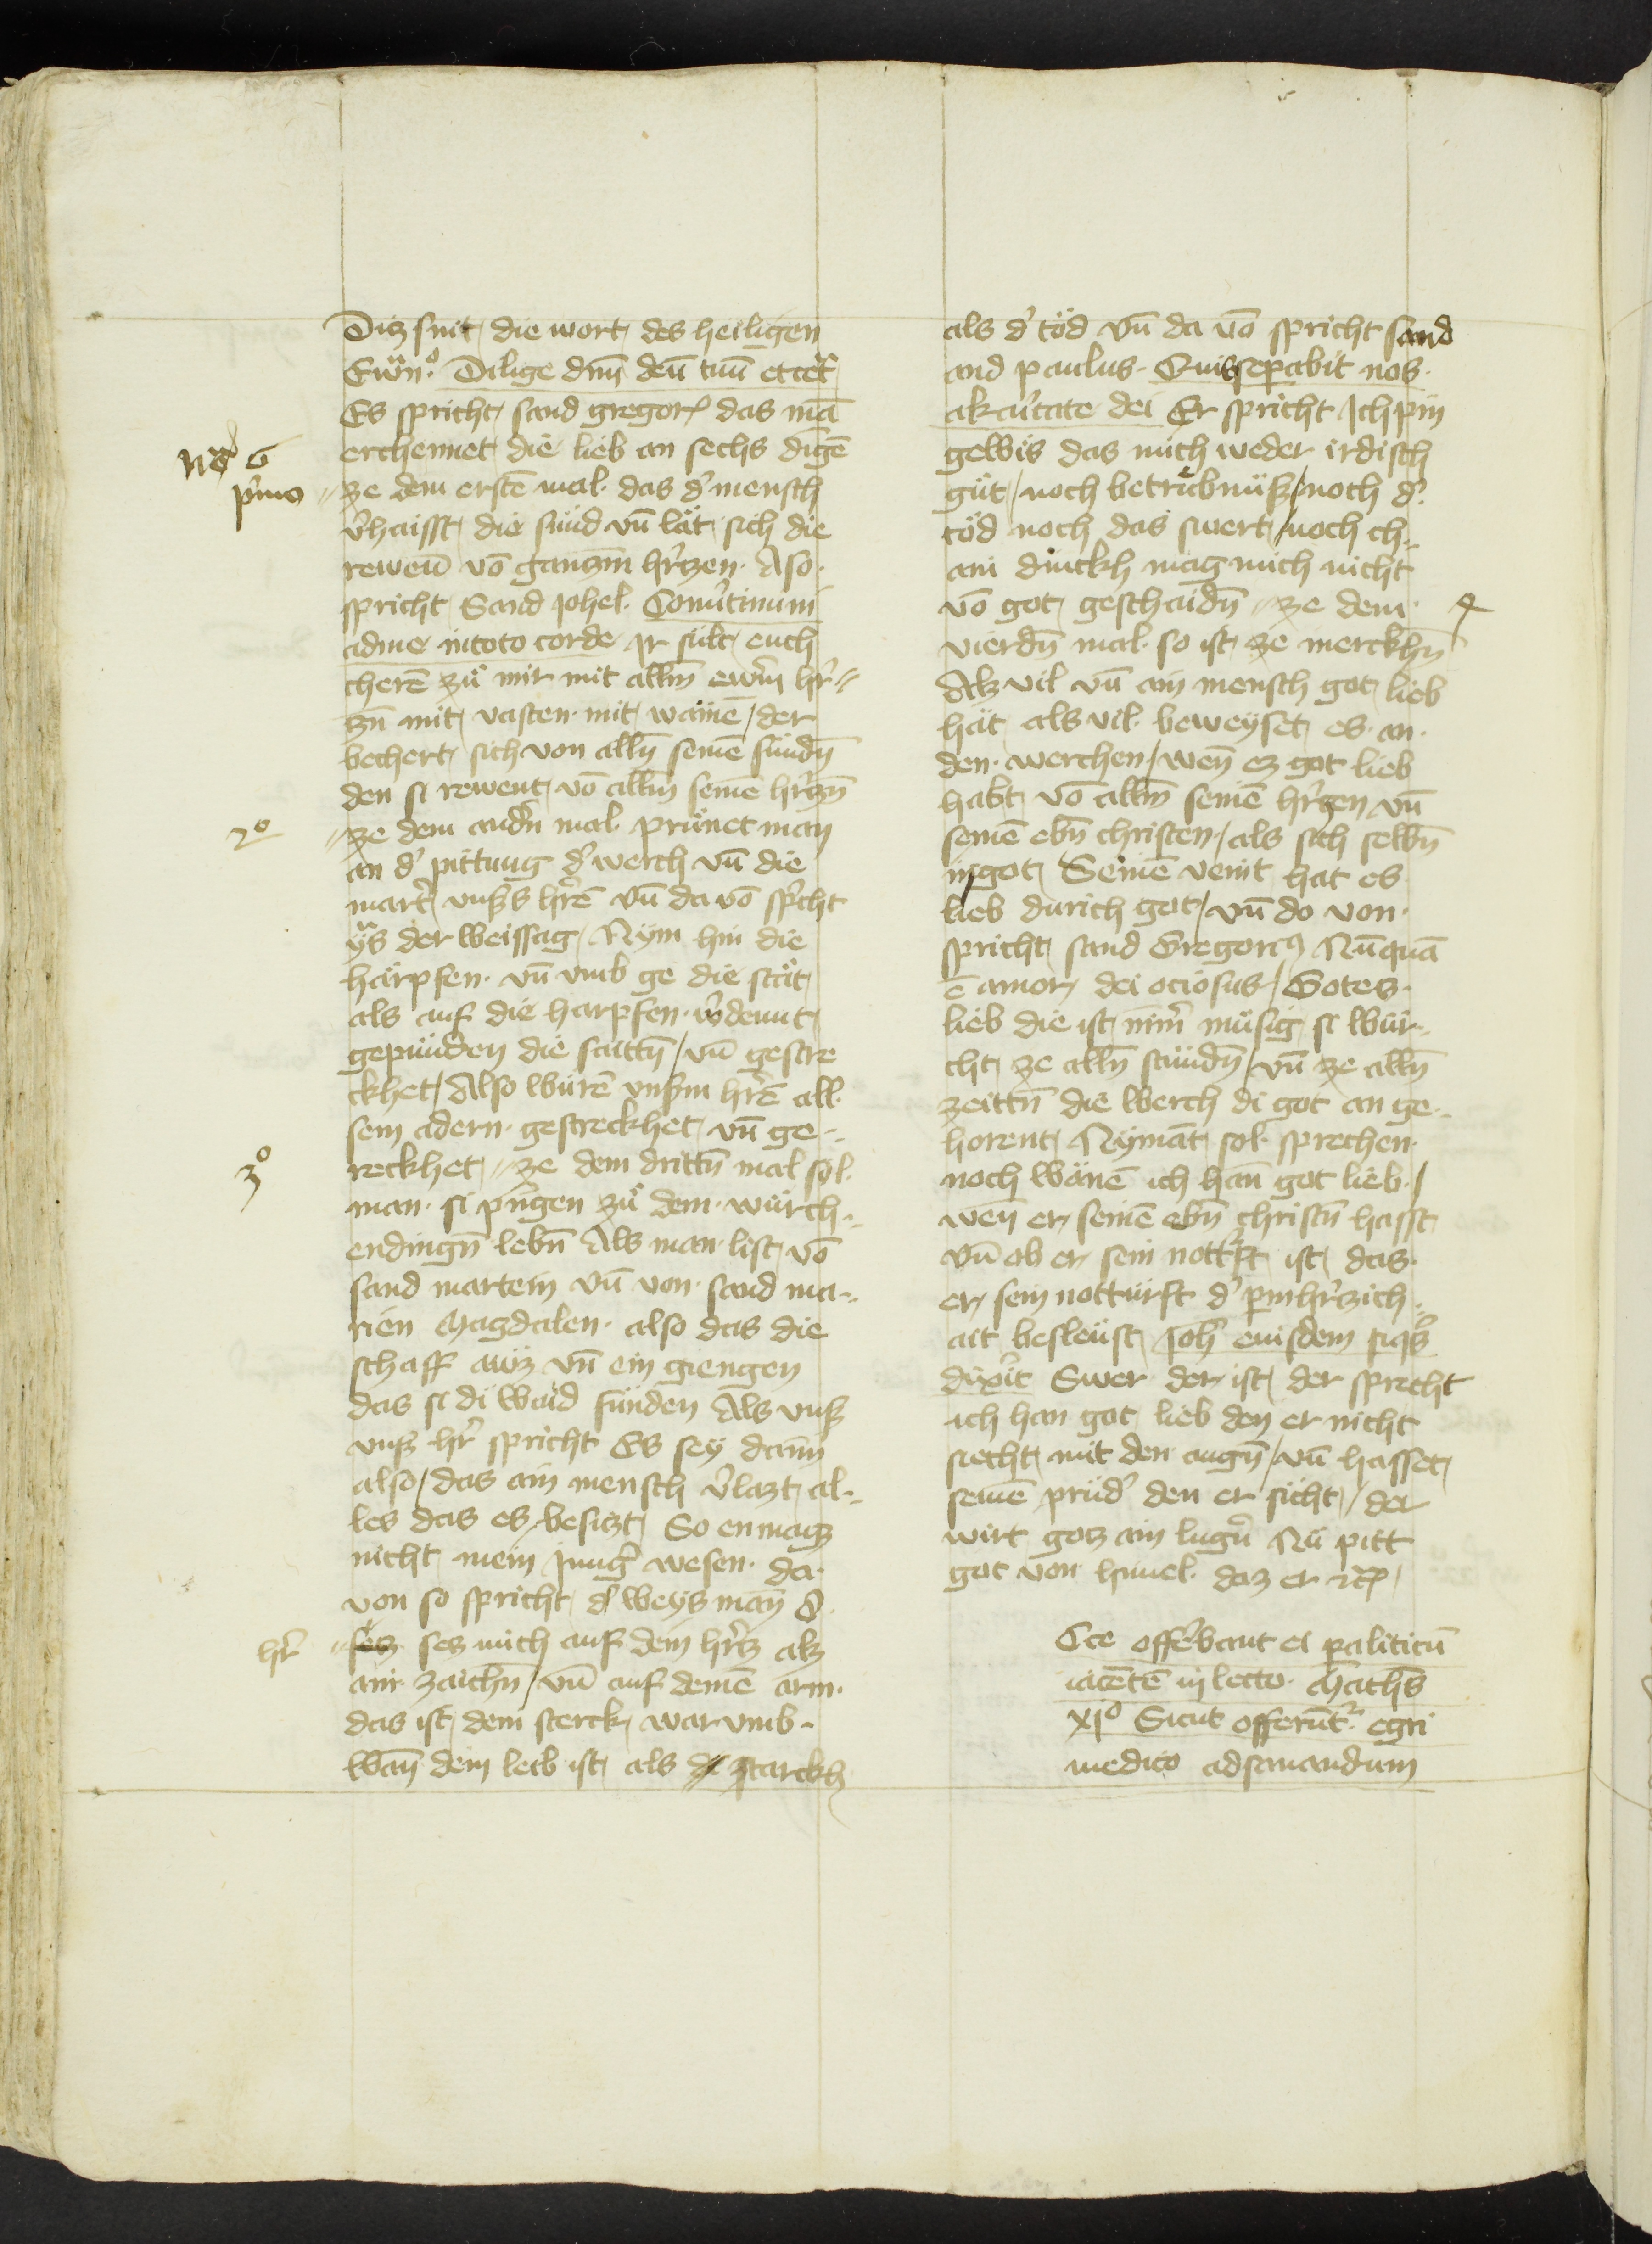 Ditz sint die wort des heiligen
Ewn̄o. Dilige dnm̄ deū tuū etcet̉
Es spricht sand gregor das mā
erchennet die lieb an sechs dīgē
nō 6
pͥmo
ze dem erstē mal. das d̉ mensch
v̉haisst die sünd vn̄ lät sich die
rewen̄ vō ganczm̄ hr̉tzen. Aso.
spricht Sand Johel. Conủtimini
adme intoto corde Ir sült euch
cherē zu̇ mir mit allm̄ ewrm̄ hr̉⸗
zn̄ mit vasten. mit wainē / der
bechert sich von alln̄ seinē sündn̄
den si rewent vō allm̄ seinē hr̉zn̄
2o
ze dem andn̄ mal. prüuet man
an d̉ pittung d̉ werch vn̄ die
mart̉ vnss̉ hr̉ē vn̄ da vō spͥcht
ẏs der weissag Nÿm hin die
härpfen. vn̄ vmb ge die stät
als auf die harpfen. w̉dennt
gepünden die saittn̄ / vn̄ gestre
ckhet / Also würē vnsm̉ hr̉ē all
sein adern. gestreckhet vn̄ ge⸗
3o
reckhet ze dem drittn̄ mal sol.
man. si pͥngen zu̇ dem. würch⸗
endingn̄ lebn̄ Als man. list vō
sand martein vn̄ von. sand ma⸗
rien Magdalen. also das die
schaff auz vn̄ ein giengen
das si di waid fünden Als vns̉
vns̉ hr̉ spricht Es sey dann̄
also / das ain mensch v̉lazt al⸗
les das es besitzt So en magz
nicht mein Jung̉ wesen. da.
von so spricht d̉ weys man̄ d̉
hr̉
sez sez mich auf dein hr̉tz alz
ain. zaichn̄ / vn̄ auf deinē arm.
das ist dein sterck war vmb.
wan̄ dein leib ist als d̉ starckh
als d̉ töd vn̄ da vō spricht sand
and paulus. Quisseparabit nos.
akaͥtate dei Er spricht Ich pin
gewis das mich weder irdisch
güt / noch betrübnüs / noch d̉
töd noch das swert / noch ch⸗
ain dinckh mag mich nicht
vō got geschaidn̄ ze dem
4
vierdn̄ mal. so ist ze merckhn̄
Alz vil vn̄ ain mensch got lieb
hät als vil. beweÿset es. an.
den. werchen / wen̄ ez got lieb
habt vō allm̄ seinē hr̉tzen vn̄
seinē ebn̄ christen / als sich selbn̄
ingot Seinē veint hat es
lieb durich got / vn̄ do von.
spricht sand Gregorꝰ Nūquā
ē amor dei ociosus / Gotes.
lieb die ist nim̉ müsig si wür⸗
cht ze alln̄ stündn̄ / vn̄ ze alln̄
zeittn̄ die werch di got an ge⸗
horent Nÿmāt sol. sprechen.
noch wänē ich han̄ got lieb. /
wen̄ er seinē ebn̄ christn̄ hasst
vn̄ ob er sein nott̉ft ist das.
er sein notturft d̉ pmhr̉zich⸗
ait besleüst Joh̄ eiusdem siqͥs
dixͥit Swer der ist der spricht
ich han got lieb den er nicht
siecht mit den augn̄ / vn̄ hasset
seinē prüd̉ den er sicht / der
wirt gotz ain lugn̉ Nü pitt
got von himel. daz er ꝛc
Cce offe̾bant ei paliticū
iacētē in lecto. Matheꝰ
xjo Sicut offerūt̉ egri
medico adsanandum